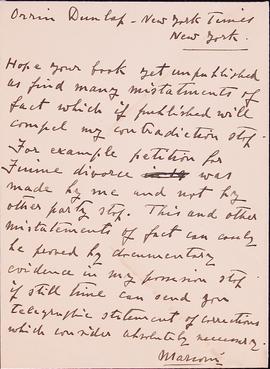 Orrin Dunlap - New York Times
New York.
Hope your book yet unpublished
as find many misstatements of
fact which if published will
compel my contradiction stop
For example petition for
Fiume divorce was
made by me and not by
other party stop. This and other
misstatements of fact can easily
be proved by documentary
evidence in my possession stop
if still time can send you
telegraphic statement of corrections
which consider absolutely necessary.
Marconi